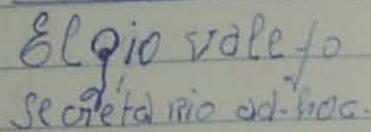 Elgio vallejo
Secretario ad-hoc.